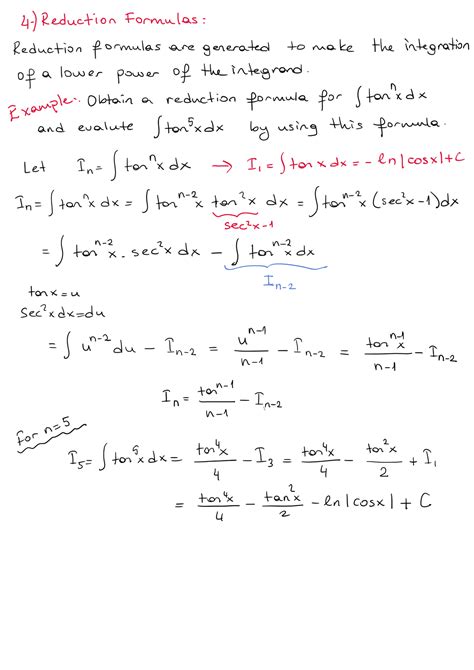 4-) Reduction Formulas:
Reduction formulas are generated to make the integration
of a lower power of the integrand.
Example: Obtain a reduction formula for ∫tanⁿx dx
and evalute ∫tan⁵x dx by using this formula.
Let Iₙ = ∫tanⁿx dx → I₁ = ∫tan x dx = - ln|cosx| + C
Iₙ = ∫tanⁿx dx = ∫tanⁿ⁻²x tan²x dx = ∫tanⁿ⁻²x (sec²x-1) dx
sec²x-1
= ∫tanⁿ⁻²x . sec²x dx - ∫tanⁿ⁻²x dx
Iₙ₋₂
tan x = u
sec²x dx = du
= ∫uⁿ⁻² du - Iₙ₋₂ = uⁿ⁻¹/(n-1) - Iₙ₋₂ = tanⁿ⁻¹x/(n-1) - Iₙ₋₂
Iₙ = tanⁿ⁻¹/(n-1) - Iₙ₋₂
for n=5
I₅ = ∫tan⁵x dx = tan⁴x/4 - I₃ = tan⁴x/4 - tan²x/2 + I₁
= tan⁴x/4 - tan²x/2 - ln|cosx| + C